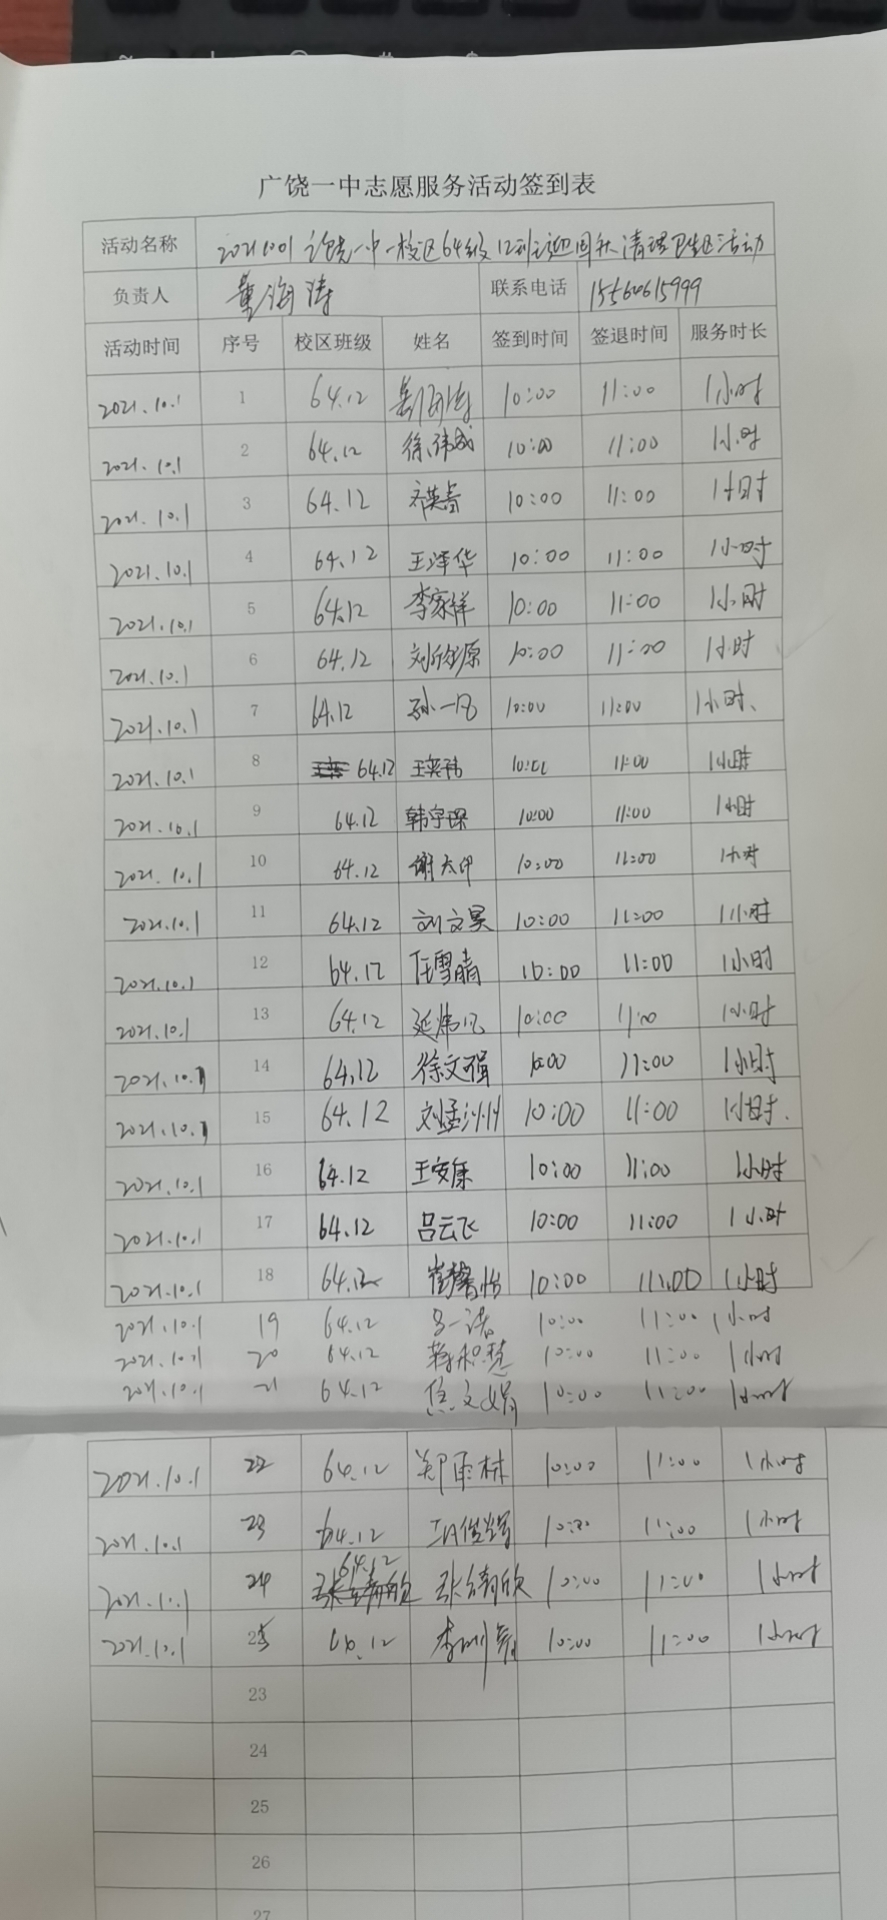 广饶一中志愿服务活动签到表
活动名称 20211001 饶一中一校区64级12班迎国庆清理卫生区活动
负责人 董海涛 联系电话 15560615999
活动时间 序号 校区班级 姓名 签到时间 签退时间 服务时长
2021.10.1 1 64.12 10:00 11:00 1小时
2021.10.1 2 64.12 徐伟成 10:00 11:00 1小时
2021.10.1 3 64.12 10:00 11:00 1小时
2021.10.1 4 64.12 王泽华 10:00 11:00 1小时
2021.10.1 5 64.12 李家祥 10:00 11:00 1小时
2021.10.1 6 64.12 刘欣源 10:00 11:00 1小时
2021.10.1 7 64.12 孙一凡 10:00 11:00 1小时、
2021.10.1 8 64.12 王奕祎 10:00 11:00 1小时
2021.10.1 9 64.12 韩宇琛 10:00 11:00 1小时
2021.10.1 10 64.12 谢太甲 10:00 11:00 1小时
2021.10.1 11 64.12 刘文昊 10:00 11:00 1小时
2021.10.1 12 64.12 任雪晴 10:00 11:00 1小时
2021.10.1 13 64.12 延炜凡 10:00 11:00 1小时
2021.10.1 14 64.12 徐文强 10:00 11:00 1小时
2021.10.1 15 64.12 刘孟洲 10:00 11:00 1小时.
2021.10.1 16 64.12 王安康 10:00 11:00 1小时
2021.10.1 17 64.12 吕云飞 10:00 11:00 1小时
2021.10.1 18 64.12 崔馨怡 10:00 11:00 1小时
2021.10.1 19 64.12 10:00 11:00 1小时
2021.10.1 20 64.12 10:00 11:00 1小时
2021.10.1 21 64.12 焦文娟 10:00 11:00 1小时
2021.10.1 22 64.12 郑雨林 10:00 11:00 1小时
2021.10.1 23 64.12 10:00 11:00 1小时
2021.10.1 24 64.12 张靖欣 10:00 11:00 1小时
2021.10.1 25 64.12 10:00 11:00 1小时
23
24
25
26
27